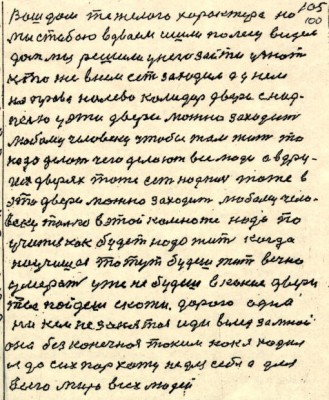 105
Ваш дом тяжелого характера но 100
мы стобою вдваем ишли полесу видел
дом мы решили унего зайти узнат
кто же внем ест заходил а у нем
направа налево калидар двере снад-
песю у эти двере можно заходит
любому человеку чтобы там жит то
надо делат чего делают все люди а вдру-
гих дверях тоже ест надпис тоже в
это двере можно заходит любому чело-
веку толко в этой комноте надо по
учится как будет надо жит когда
научишся то тут будеш жит вечно
умерат уже не будеш в какие двери
ты пойдеш скожи. дорога одна
ни кем не занятоя иди вслед за мной
она без конечноя таким как я ходил
и до сих пар хожу не для себя а для
всего мира всех людей